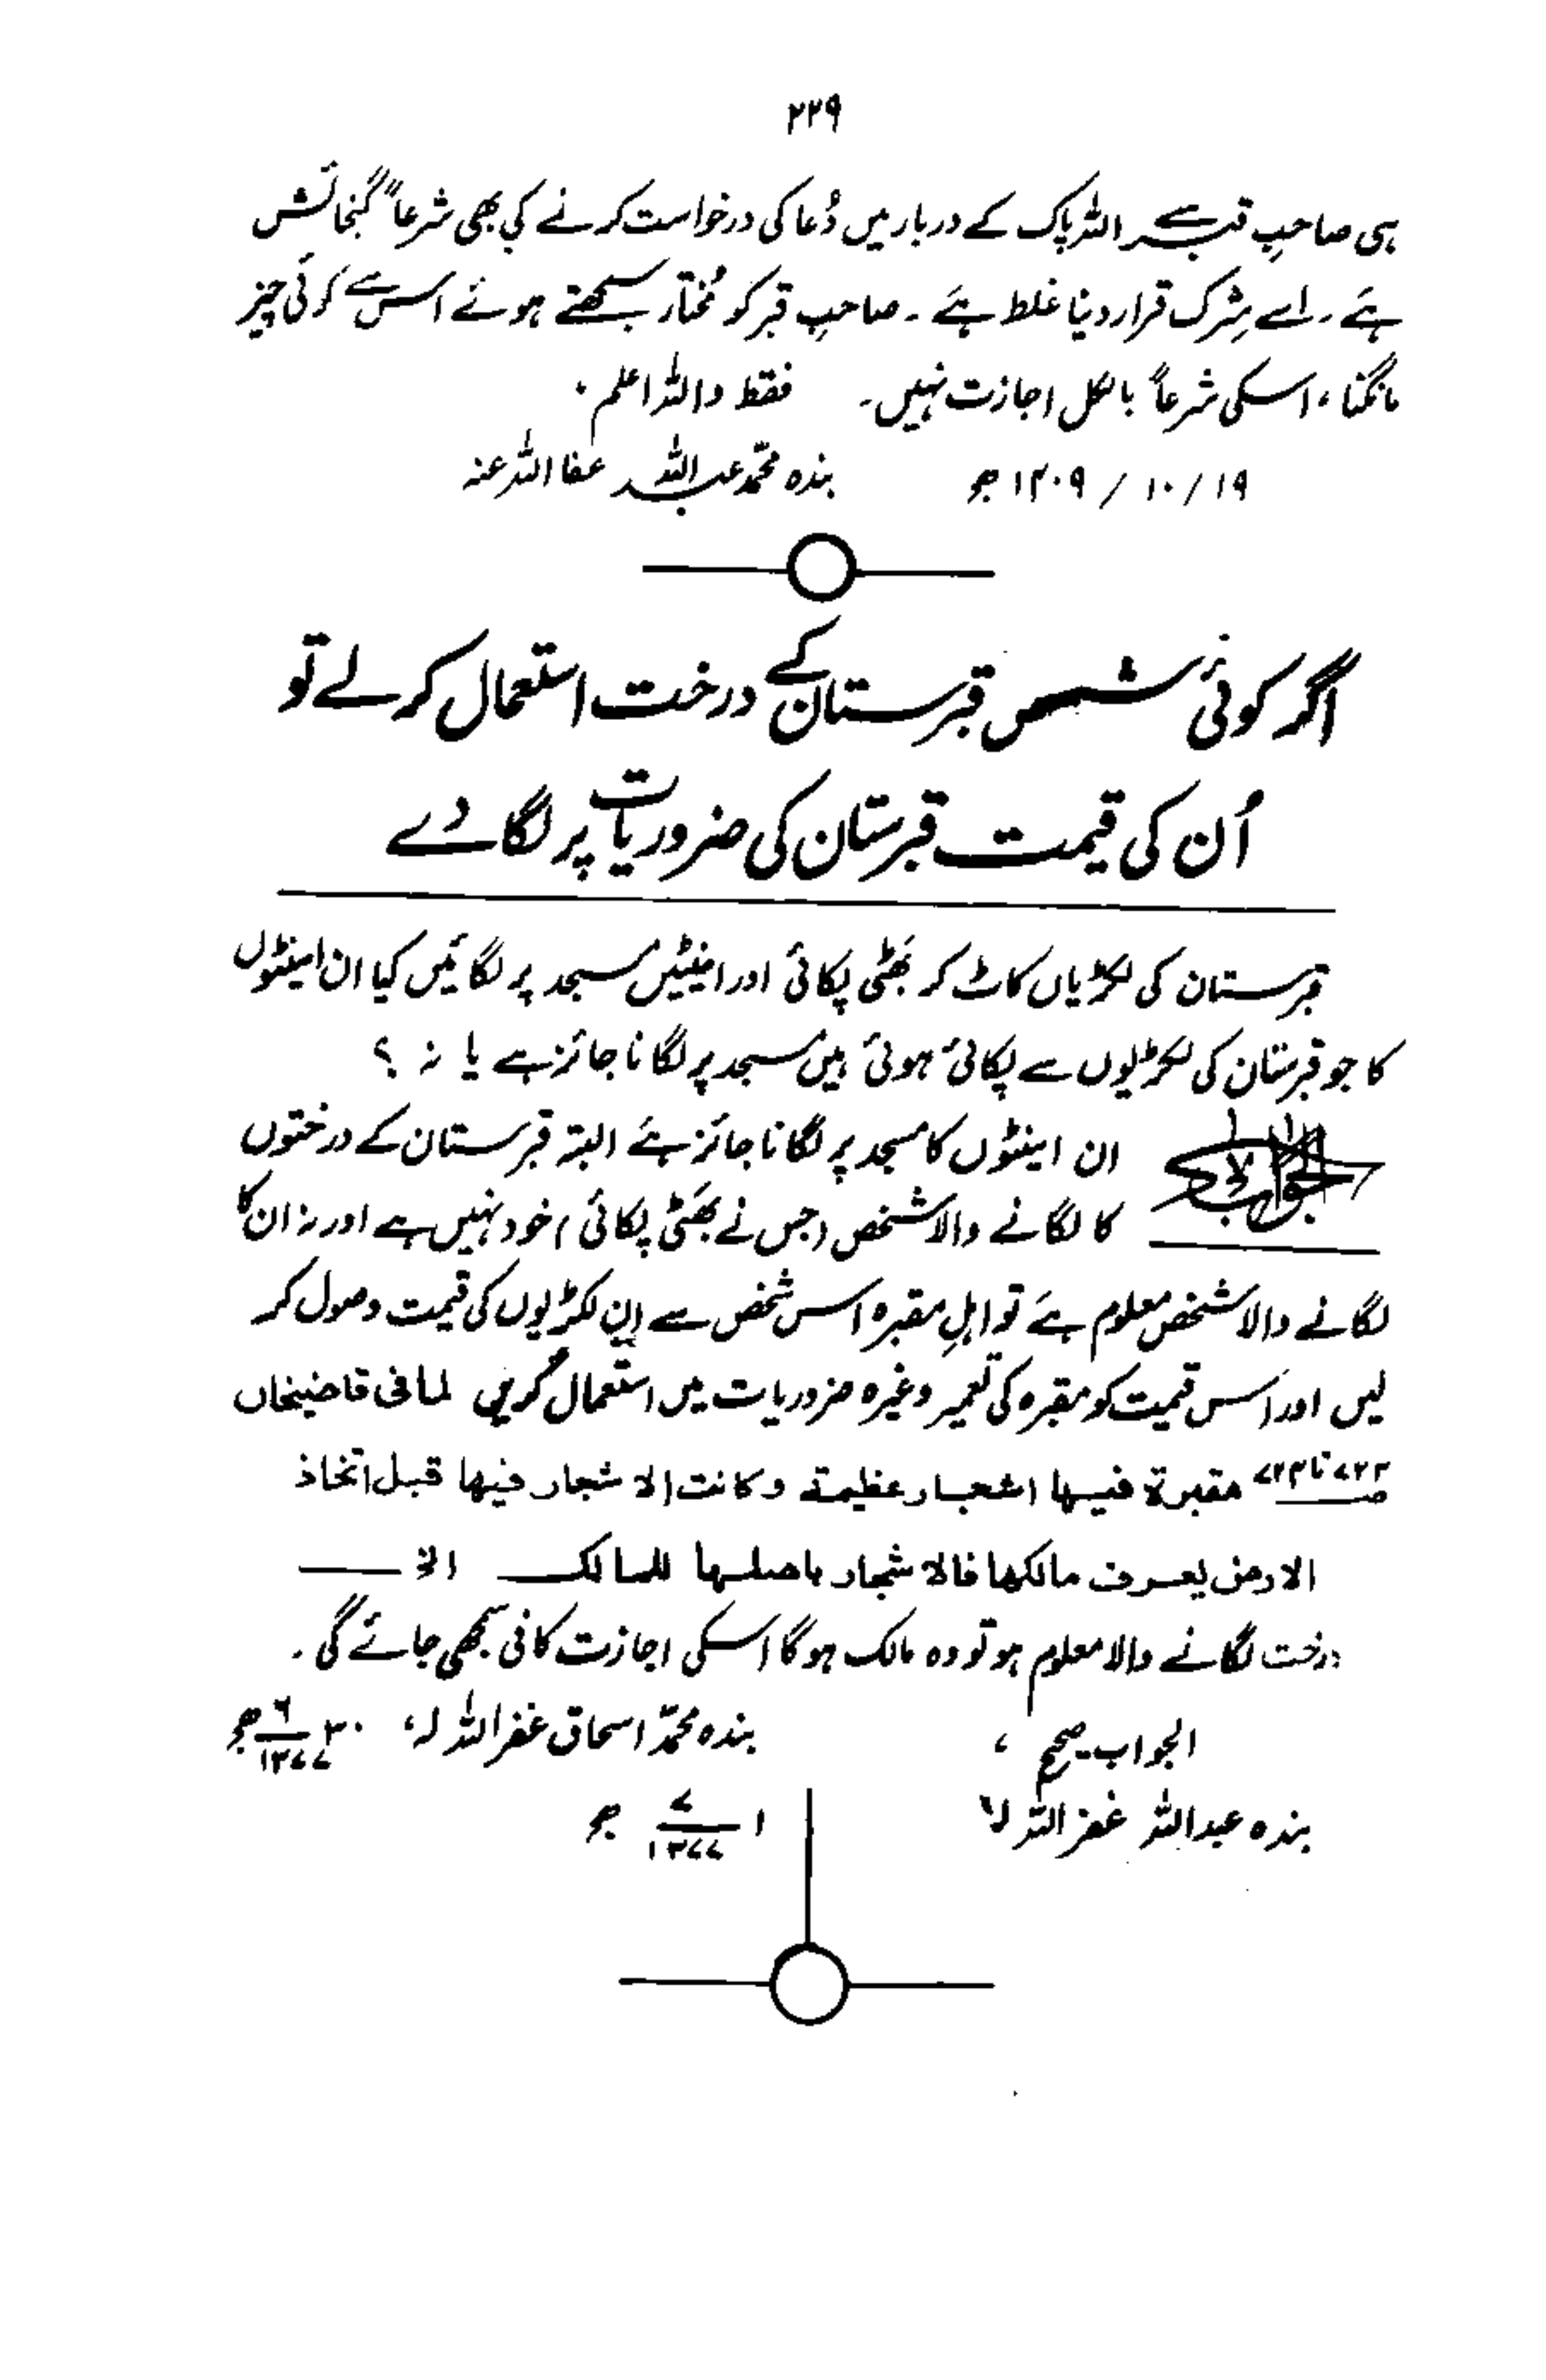 ۲۲۹
ہی صاحبِ قبر سے اللہ پاک کے دربار میں دُعا کی درخواست کرنے کی بھی شرعاً گنجائش
ہے ۔ اسے شرک قرار دینا غلط ہے ۔ صاحبِ قبر کو مُختار سمجھتے ہوئے اس سے کوئی چیز
مانگنا ، اسکی شرعاً بالکل اجازت نہیں ۔ فقط واللہ اعلم ،
بندہ محمّد عبداللہ عفا اللہ عنہ ۱۹ / ۱۰ / ۱۴۰۹ھ
اگر کوئی شخص قبرستان کے درخت استعمال کر لے تو
اُن کی قیمت قبرستان کی ضروریات پر لگا دے
قبرستان کی لکڑیاں کاٹ کر بھٹی پکائی اور اینٹیں مسجد پر لگائیں کیا ان اینٹوں
کا جو قبرستان کی لکڑیوں سے پکائی ہوئی ہیں مسجد پر لگانا جائز ہے یا نہ ؟
الجواب ان اینٹوں کا مسجد پر لگانا جائز ہے البتہ قبرستان کے درختوں
کا لگانے والا شخص (جس نے بھٹی پکائی) خود نہیں ہے اور نہ ان کا
لگانے والا شخص معلوم ہے تو اہلِ مقبرہ اس شخص سے اِن لکڑیوں کی قیمت وصول کر
لیں اور اس قیمت کو مقبرہ کی تعمیر وغیرہ ضروریات میں استعمال کریں لما فی قاضیخاں
مقبرة فيها اشجار عظيمة وكانت الاشجار فيها قبل اتخاذ
الارض يعرف مالكها فالاشجار باصلها للمالك الخ
درخت لگانے والا معلوم ہو تو وہ مالک ہوگا اسکی اجازت کافی سمجھی جائے گی ۔
الجواب صحیح ، بندہ محمّد اسحاق غفر اللہ لہ ، ۳۰ / ۶ / ۱۳۷۷ھ
بندہ عبداللہ غفر اللہ لہ ۱ / ۷ / ۱۳۷۷ھ